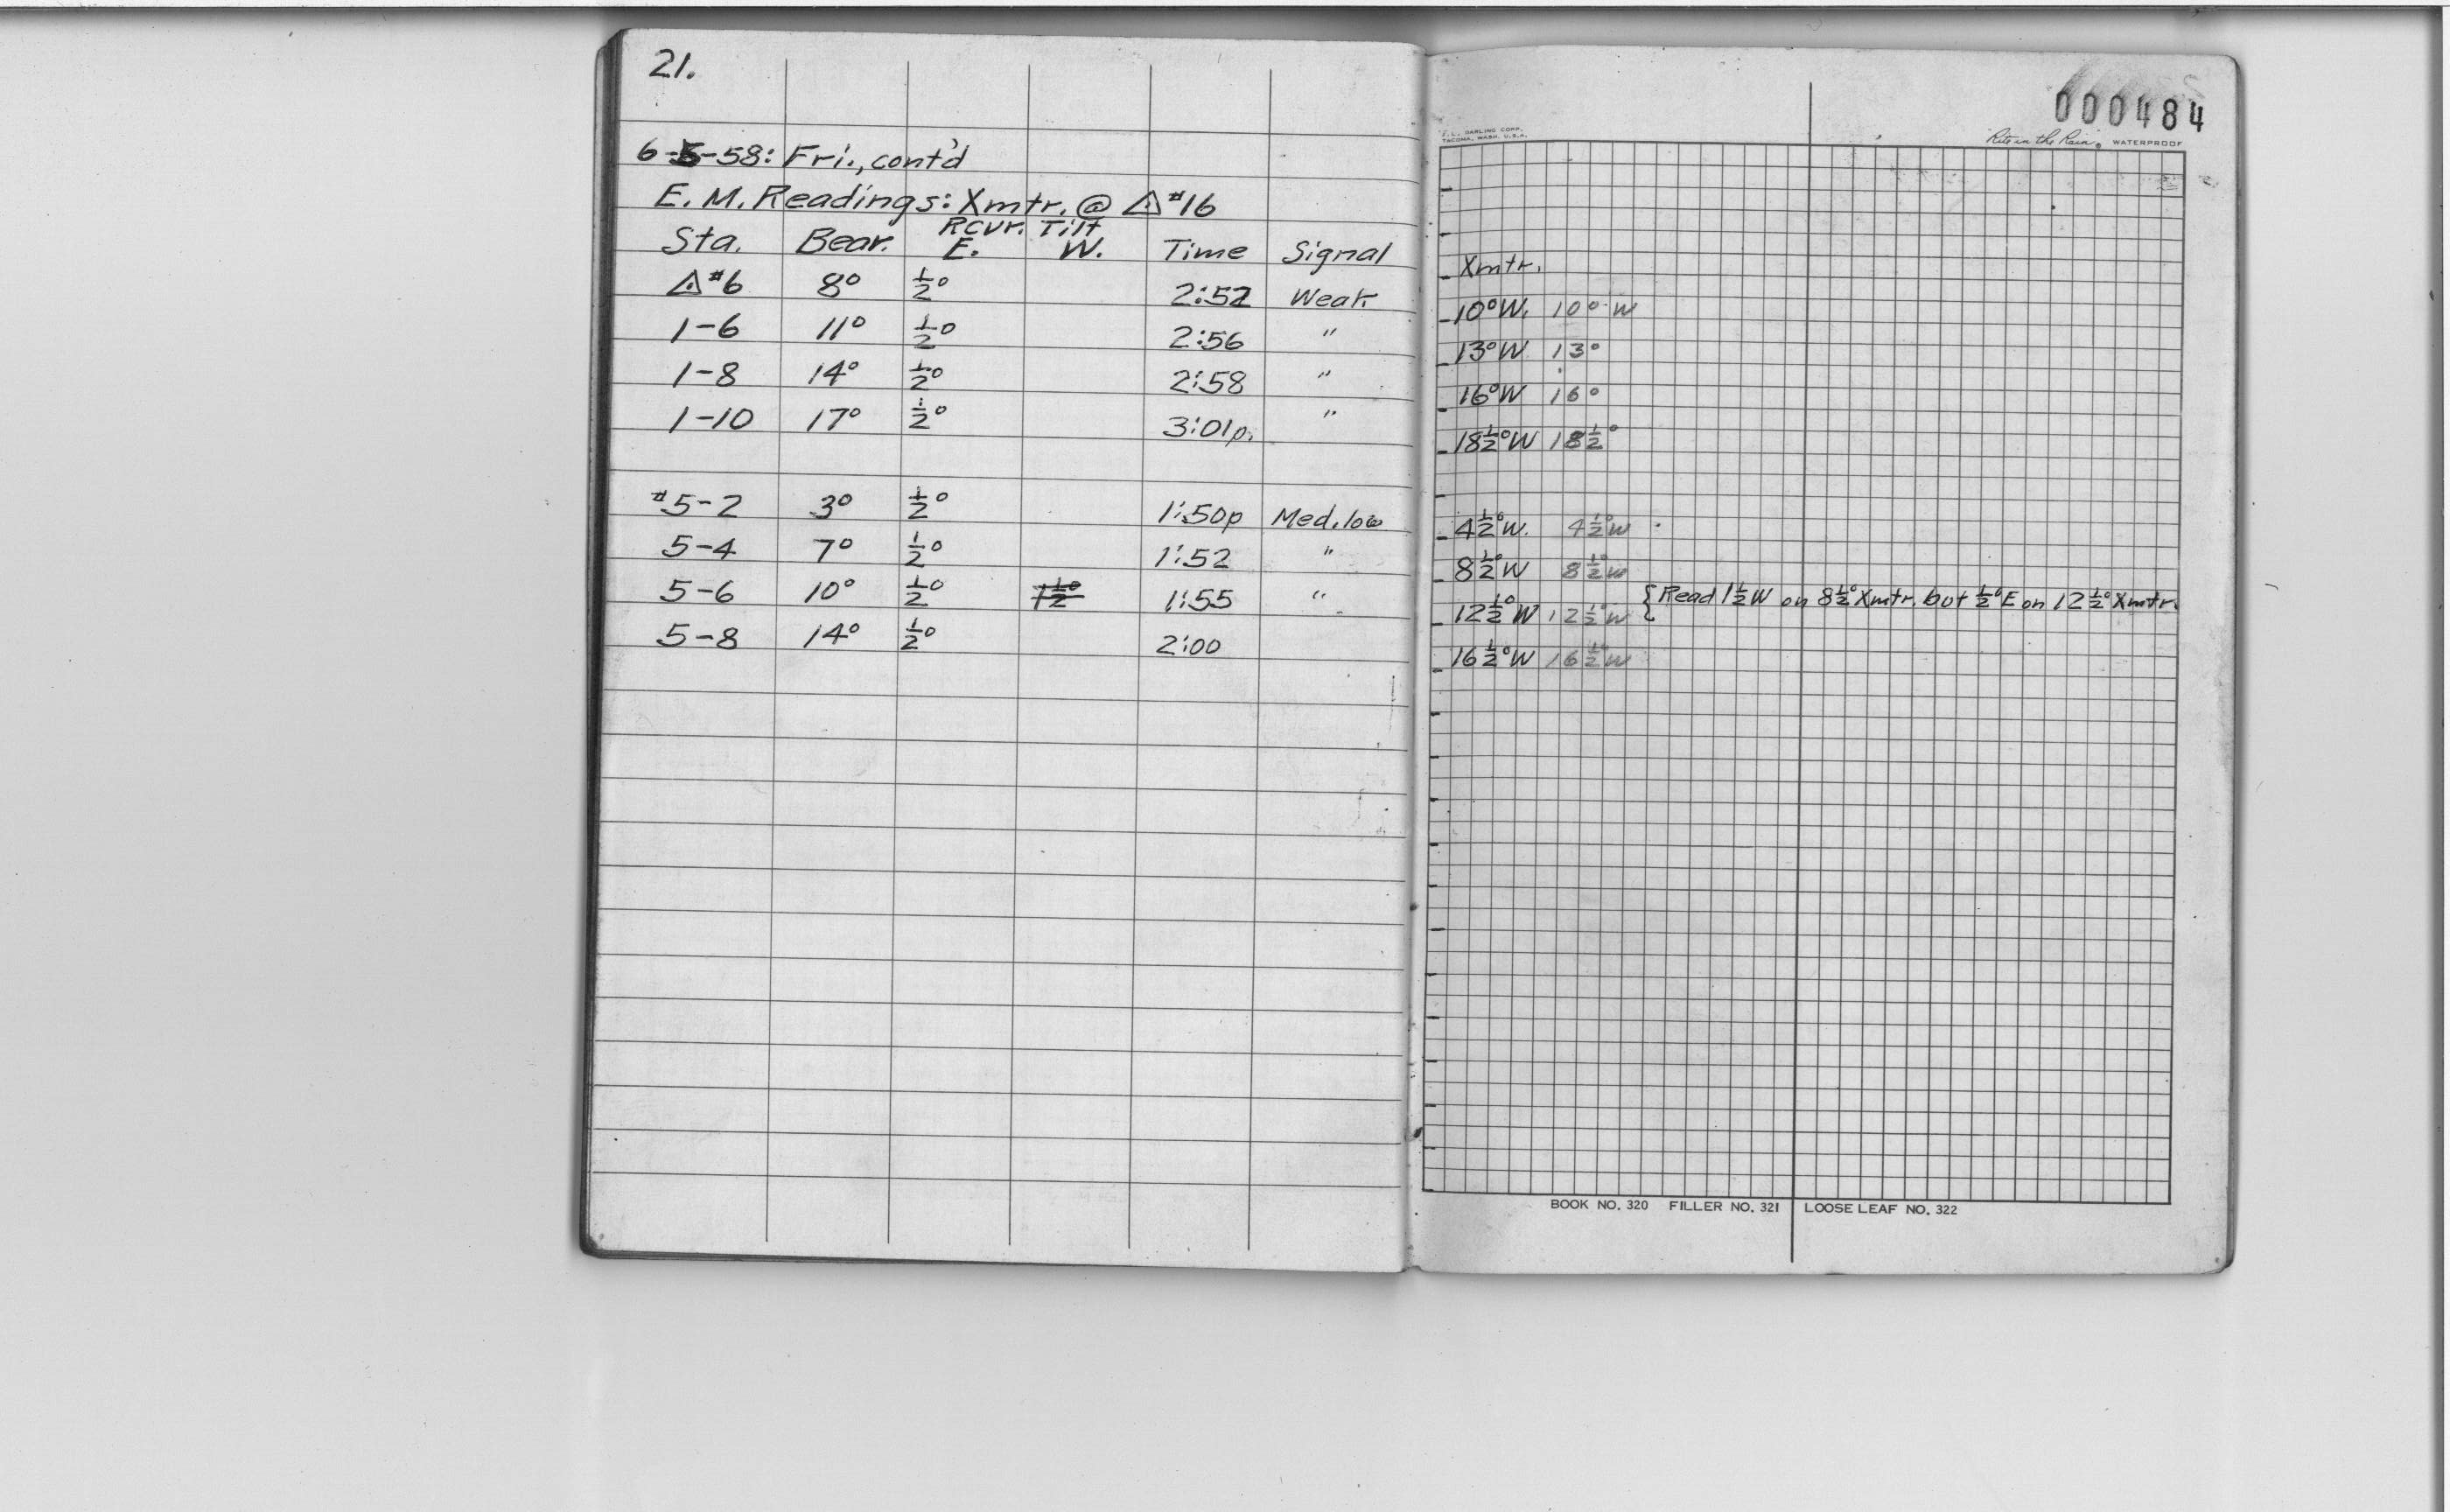 21.
6-5-58: Fri., cont'd
E. M. Readings: Xmtr. @ △ #16
Rcvr. Tilt
Sta. Bear. E. W. Time Signal
△ #6 8° ½° 2:52 Weak
1-6 11° ½° 2:56 "
1-8 14° ½° 2:58 "
1-10 17° ½° 3:01p. "
#5-2 3° ½° 1:50p Med. low
5-4 7° ½° 1:52 "
5-6 10° ½° 1½° 1:55 "
5-8 14° ½° 2:00
000484
J. L. DARLING CORP.
TACOMA, WASH. U.S.A.
Rite in the Rain WATERPROOF
Xmtr.
10°W. 10° W
13°W 13°
16°W 16°
18½°W 18½°
4½°W. 4½°W
8½°W 8½°W
12½°W 12½°W { Read 1½W on 8½° Xmtr. but ½°E on 12½° Xmtr.
16½°W 16½°W
BOOK NO. 320 FILLER NO. 321 LOOSE LEAF NO. 322